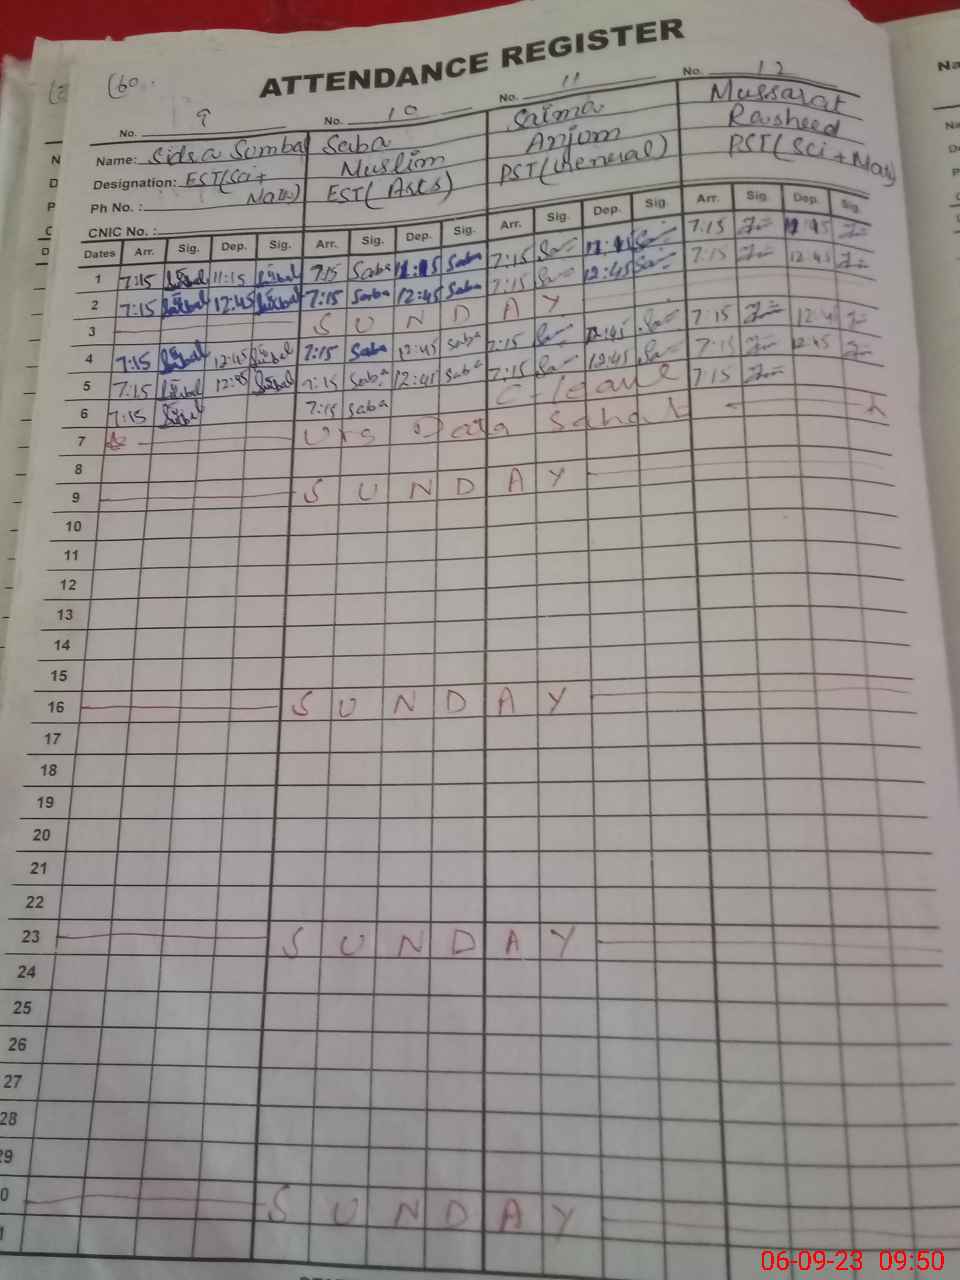 (60.
ATTENDANCE REGISTER
No. 9 No. 10 No. 11 No. 12
Name: Sidra Sumbal Saba Saima Mussarat
Muslim Anjum Rasheed
Designation: EST(Sci+ Math) EST(Arts) PST(General) PST(Sci+Math)
Ph No. :
CNIC No. :
Dates Arr. Sig. Dep. Sig. Arr. Sig. Dep. Sig. Arr. Sig. Dep. Sig. Arr. Sig. Dep. Sig.
1 7:15 11:15 7:15 Saba 11:15 Saba 7:15 7:15
2 7:15 12:45 7:15 Saba 12:45 Saba 7:15 12:45 7:15 12:45
3 S U N D A Y
4 7:15 12:45 7:15 Saba 12:45 Saba 7:15 12:45 7:15 12:45
5 7:15 12:45 7:15 Saba 12:45 Saba 7:15 12:45 7:15 12:45
6 7:15 7:15 Saba C-leave 7:15
7 Urs Data Sahab
8
9 S U N D A Y
10
11
12
13
14
15
16 S U N D A Y
17
18
19
20
21
22
23 S U N D A Y
24
25
26
27
28
29
0 S U N D A Y
1
06-09-23 09:50